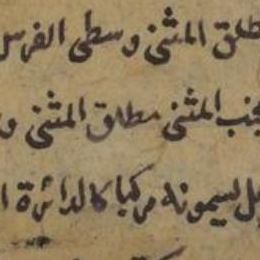 مطلق المثنى وسطى الفرس
مجنب المثنى مطلق المثنى و
يسمونه مركبا كالدائرة ا